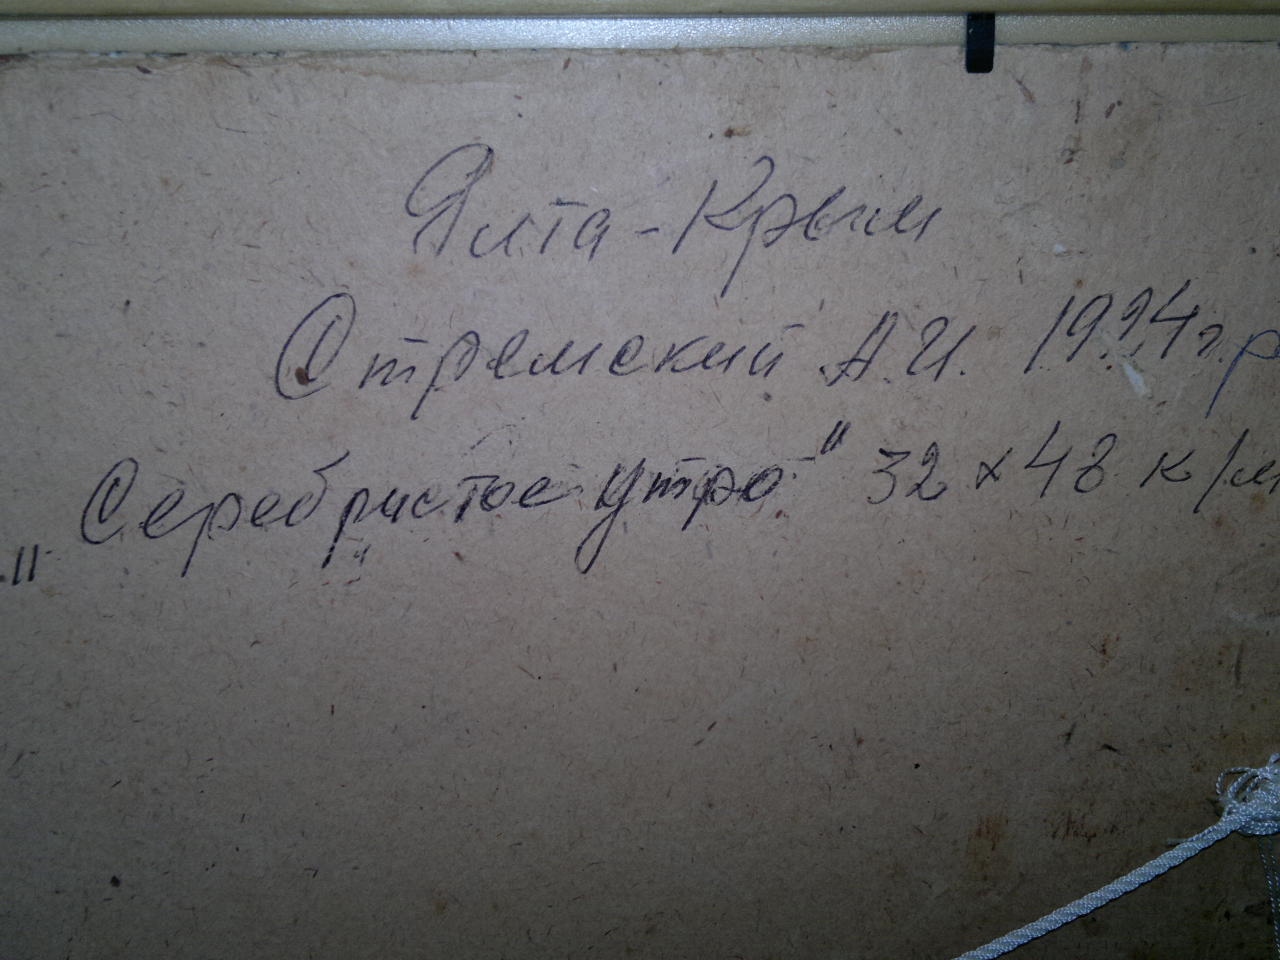 Ялта - Крым
Стремский А.И. 1924 г. р
"Серебристое утро" 32 x 48 к/м